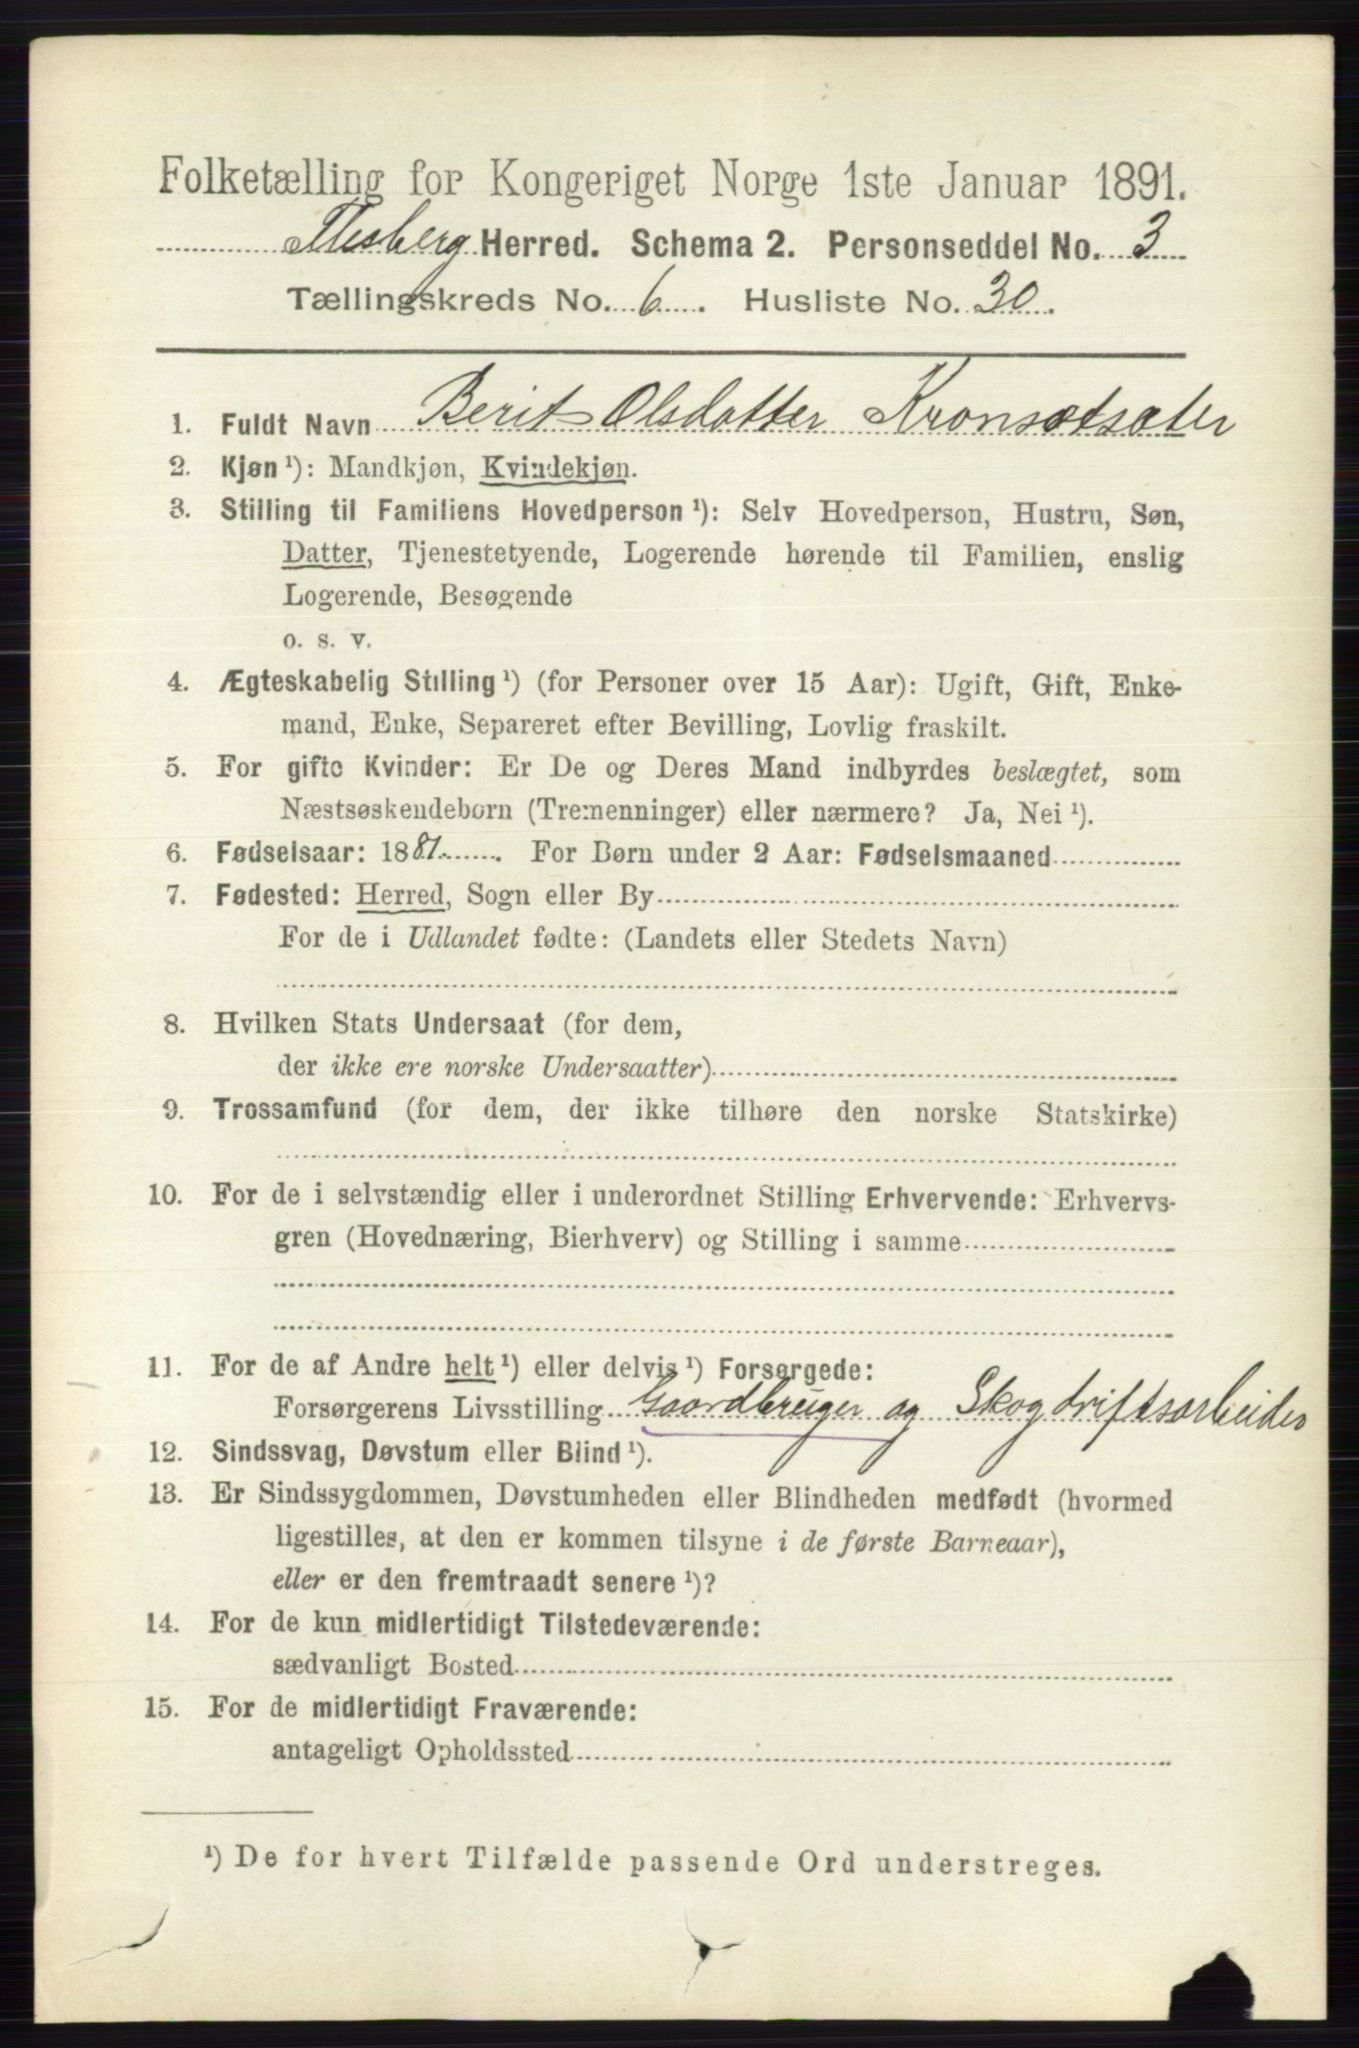 Folketælling for Kongeriget Norge 1ste Januar 1891.
Flesberg Herred. Schema 2. Personseddel No. 3
Tællingskreds No. 6. Husliste No. 30.
1. Fuldt Navn Berit Olsdatter Kronsætsæter
2. Kjøn ¹): Mandkjøn, Kvindekjøn.
3. Stilling til Familiens Hovedperson ¹): Selv Hovedperson, Hustru, Søn,
Datter, Tjenestetyende, Logerende hørende til Familien, enslig
Logerende, Besøgende
o. s. v.
4. Ægteskabelig Stilling ¹) (for Personer over 15 Aar): Ugift, Gift, Enke-
mand, Enke, Separeret efter Bevilling, Lovlig fraskilt.
5. For gifte Kvinder: Er De og Deres Mand indbyrdes beslægtet, som
Næstsøskendebørn (Tremenninger) eller nærmere? Ja, Nei ¹).
6. Fødselsaar: 1881. For Børn under 2 Aar: Fødselsmaaned
7. Fødested: Herred, Sogn eller By
For de i Udlandet fødte: (Landets eller Stedets Navn)
8. Hvilken Stats Undersaat (for dem,
der ikke ere norske Undersaatter)
9. Trossamfund (for dem, der ikke tilhøre den norske Statskirke)
10. For de i selvstændig eller i underordnet Stilling Erhvervende: Erhvervs-
gren (Hovednæring, Bierhverv) og Stilling i samme
11. For de af Andre helt ¹) eller delvis ¹) Forsørgede:
Forsørgerens Livsstilling Gaardbruger og Skogdriftsarbeider
12. Sindssvag, Døvstum eller Blind ¹).
13. Er Sindssygdommen, Døvstumheden eller Blindheden medfødt (hvormed
ligestilles, at den er kommen tilsyne i de første Barneaar),
eller er den fremtraadt senere ¹)?
14. For de kun midlertidigt Tilstedeværende:
sædvanligt Bosted
15. For de midlertidigt Fraværende:
antageligt Opholdssted
¹) De for hvert Tilfælde passende Ord understreges.